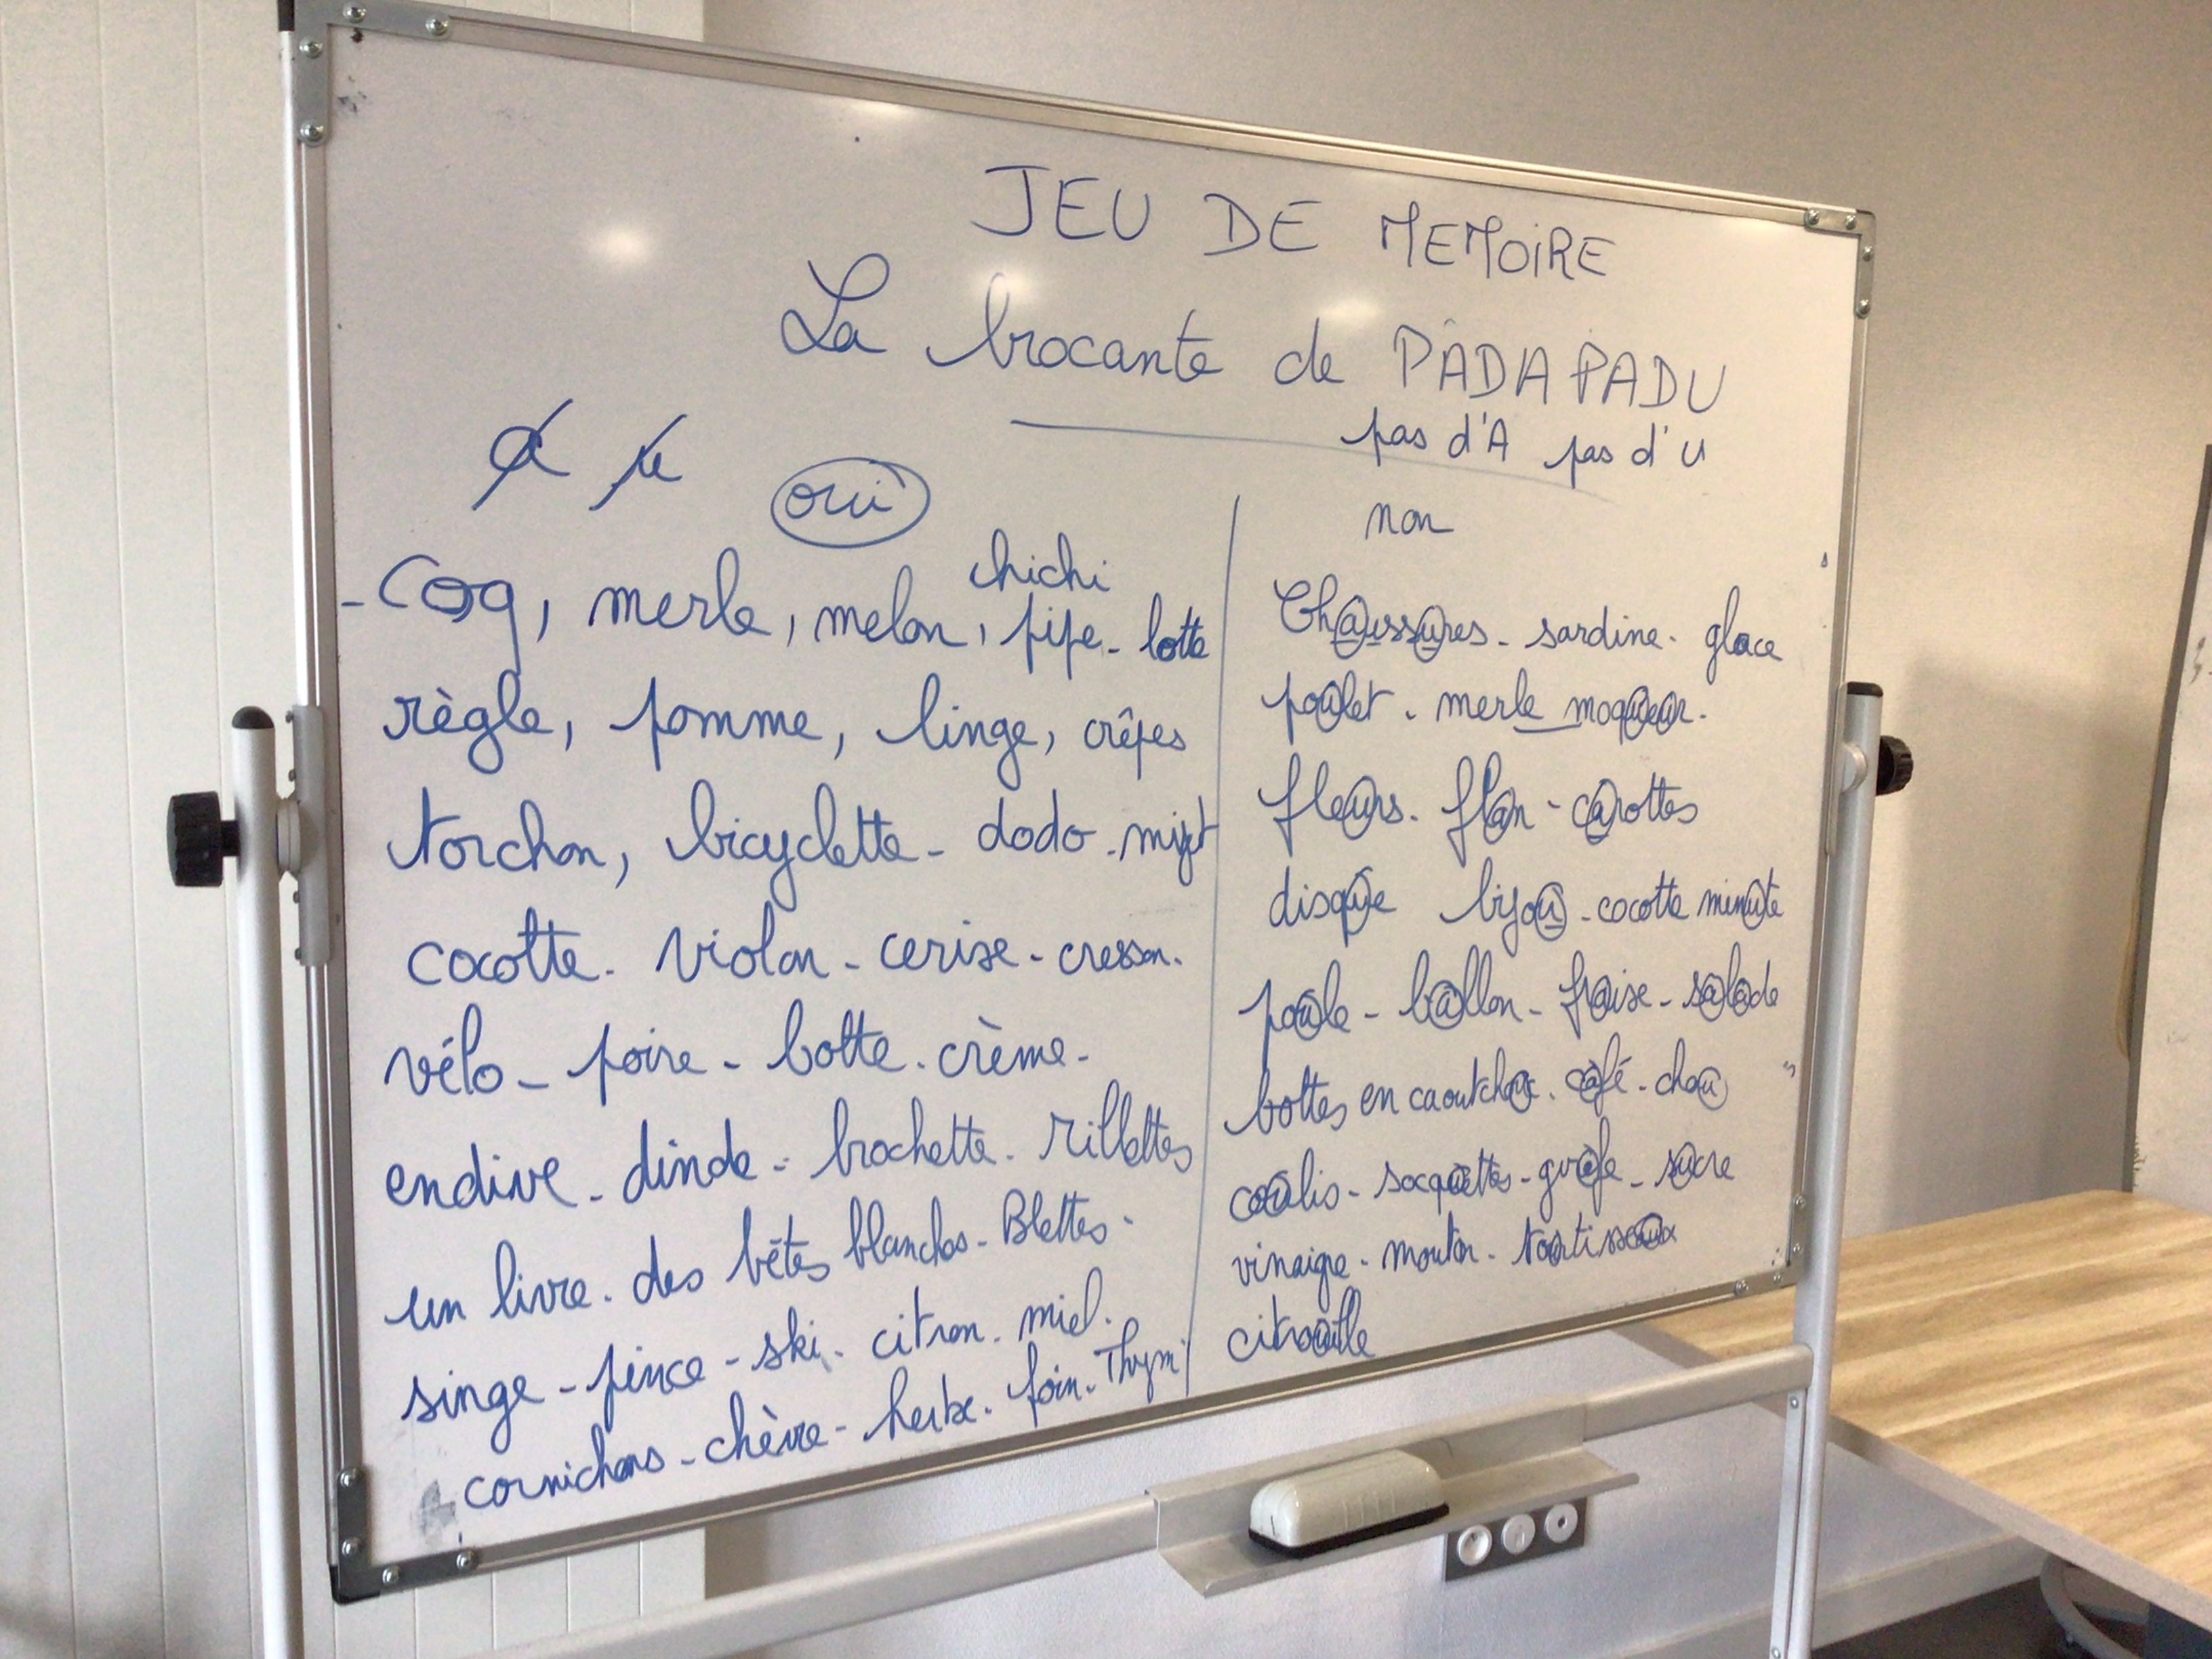 JEU DE MEMOIRE
La brocante de PADAPADU
pas d'A pas d'U
a u
oui
chichi
- Coq, merle, melon, pipe - lotte
règle, pomme, linge, crêpes
torchon, bicyclette - dodo -
cocotte - violon - cerise - cresson.
vélo - poire - botte - crème -
endive - dinde - brochette - rillettes
un livre - des bêtes blanches - Blettes -
singe - pince - ski - citron - miel.
cornichons - chèvre - herbe - foin - Thym
non
Chaussures - sardine - glace
poulet - merle moqueur.
fleurs - flan - carottes
disque bijou - cocotte minute
poule - ballon - fraise - salade
bottes en caoutchouc - café - chou
coulis - socquettes - - sucre
vinaigre - mouton -
citrouille